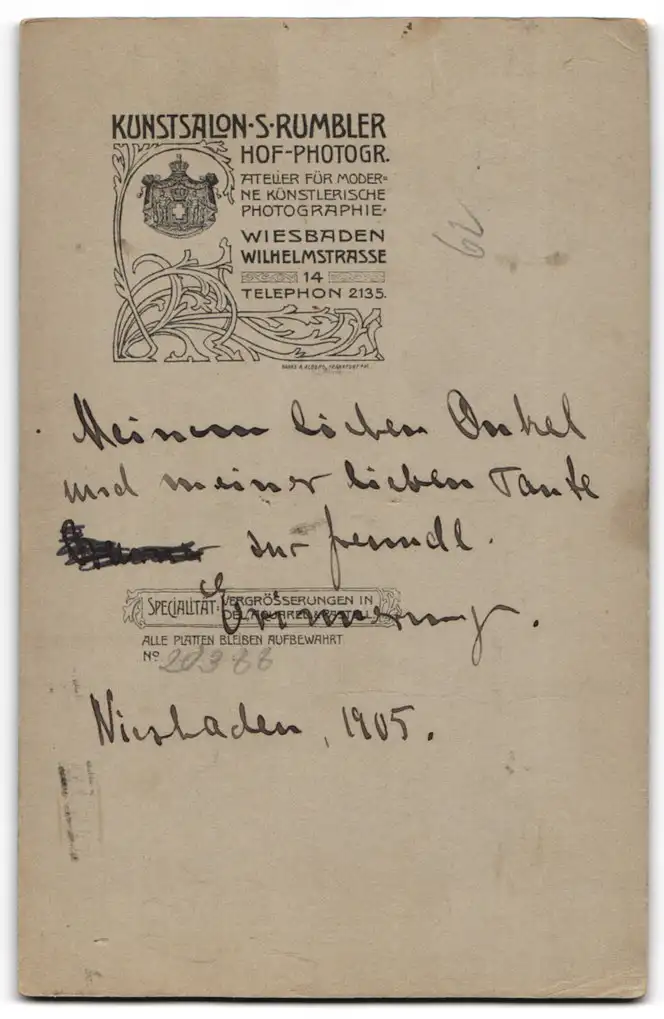 KUNSTSALON·S·RUMBLER
HOF-PHOTOGR.
ATELIER FÜR MODER=
NE KÜNSTLERISCHE
PHOTOGRAPHIE·
WIESBADEN
WILHELMSTRASSE
14
TELEPHON 2135.
62
Meinem lieben Onkel
und meiner lieben Tante
zur freundl.
Erinnerung.
SPECIALITÄT: VERGRÖSSERUNGEN IN
ALLE PLATTEN BLEIBEN AUFBEWAHRT
No
Wiesbaden, 1905.